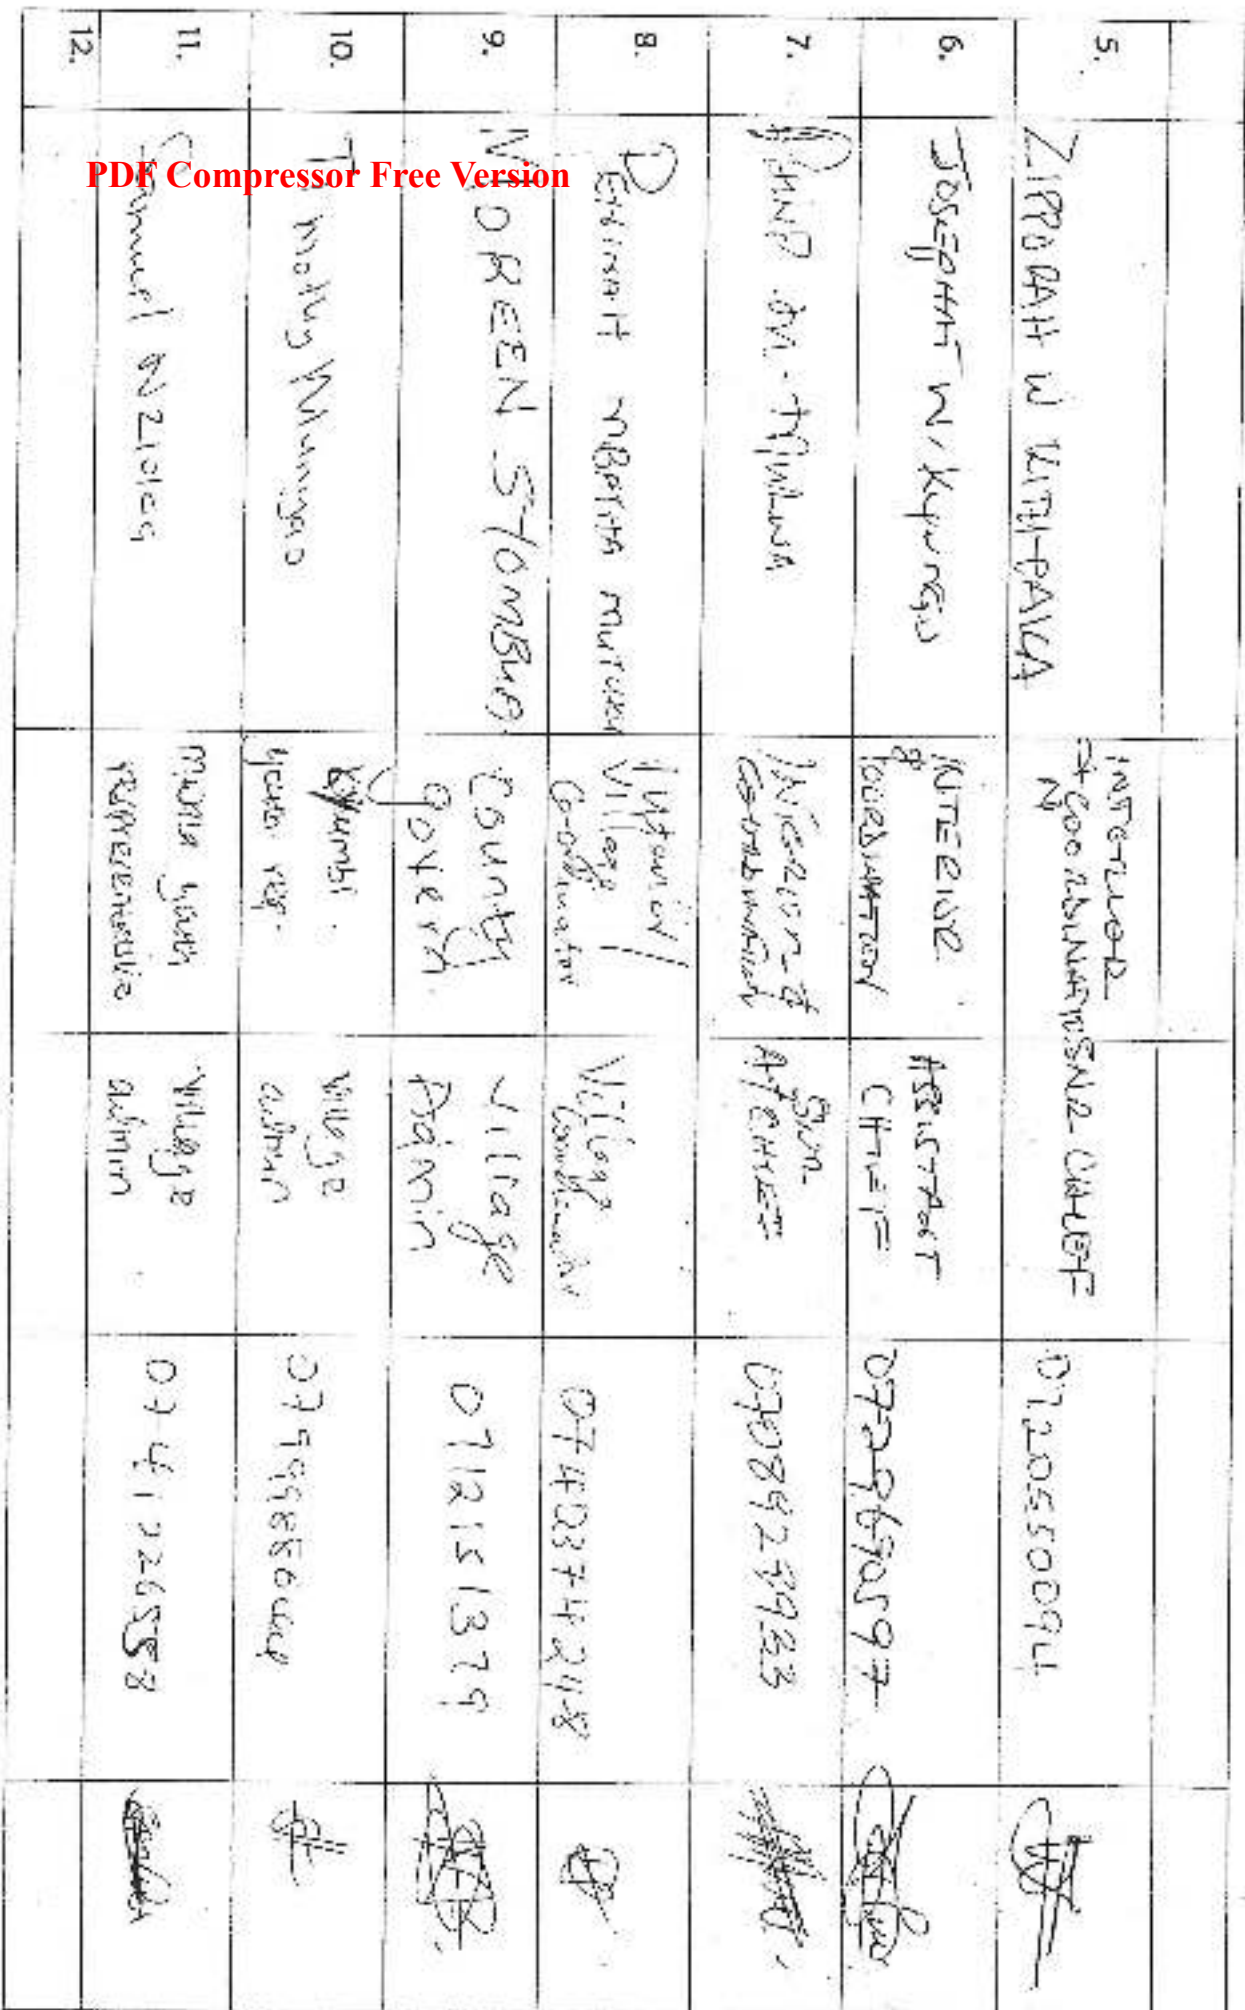 PDF Compressor Free Version
5. ZIPPORAH W INTERIOR
+ COORDINATION SNR CHIEF 0720550094
6. JOSEPHAT W. KYUNGU INTERIOR
& COORDINATION ASSISTANT
CHIEF 0729690597
7. INTERIOR &
COORDINATION SNR
A/CHIEF 0708929933
8. PENINAH MBATHA MUTUKU
Village
Co-ordinator Village
Coordinator 0740374248
9. NOREEN SYOMBUA County
Govern Village
Admin 0712151379
10. Timothy Munyao
youth rep. Village
admin
11. Samuel Nzioka youth
representative Village
admin 0741226558
12.